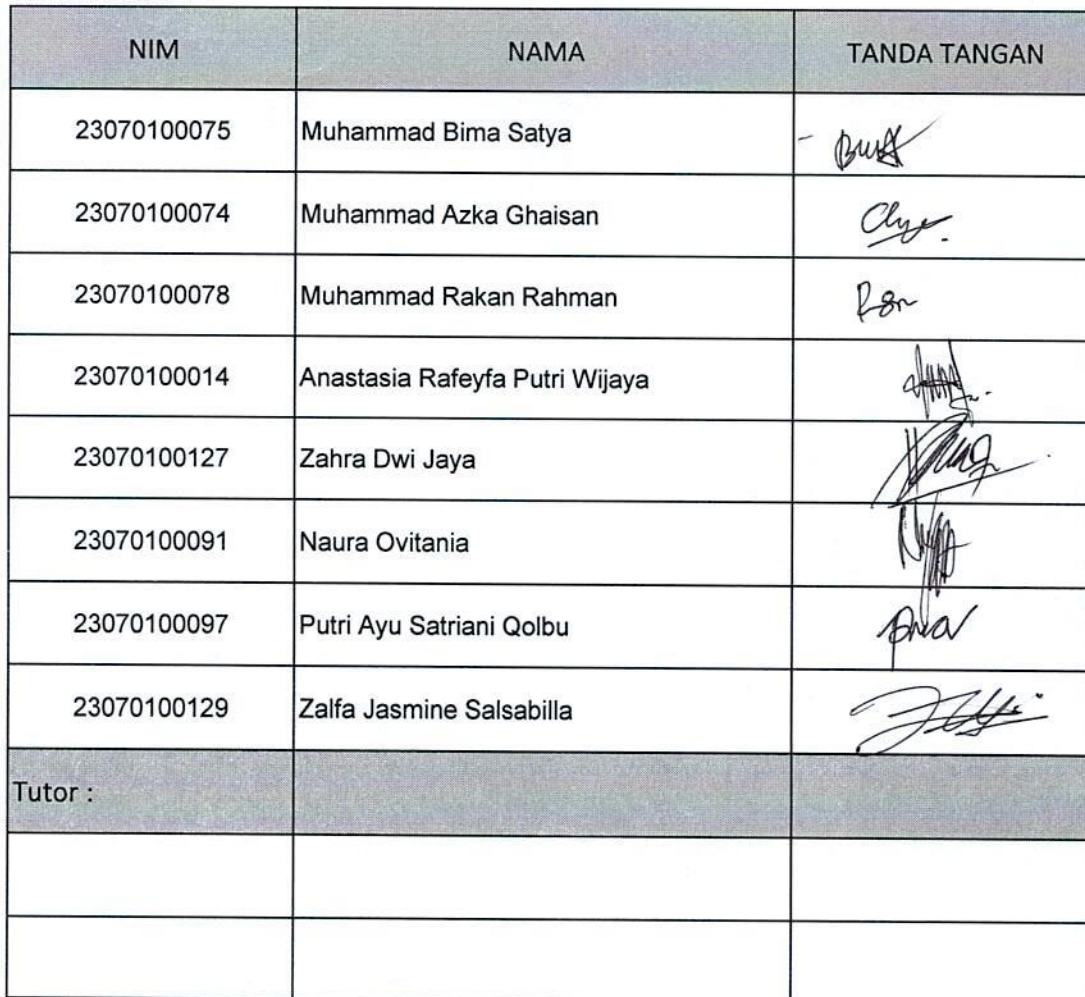 NIM NAMA TANDA TANGAN
23070100075 Muhammad Bima Satya
23070100074 Muhammad Azka Ghaisan
23070100078 Muhammad Rakan Rahman
23070100014 Anastasia Rafeyfa Putri Wijaya
23070100127 Zahra Dwi Jaya
23070100091 Naura Ovitania
23070100097 Putri Ayu Satriani Qolbu
23070100129 Zalfa Jasmine Salsabilla
Tutor :